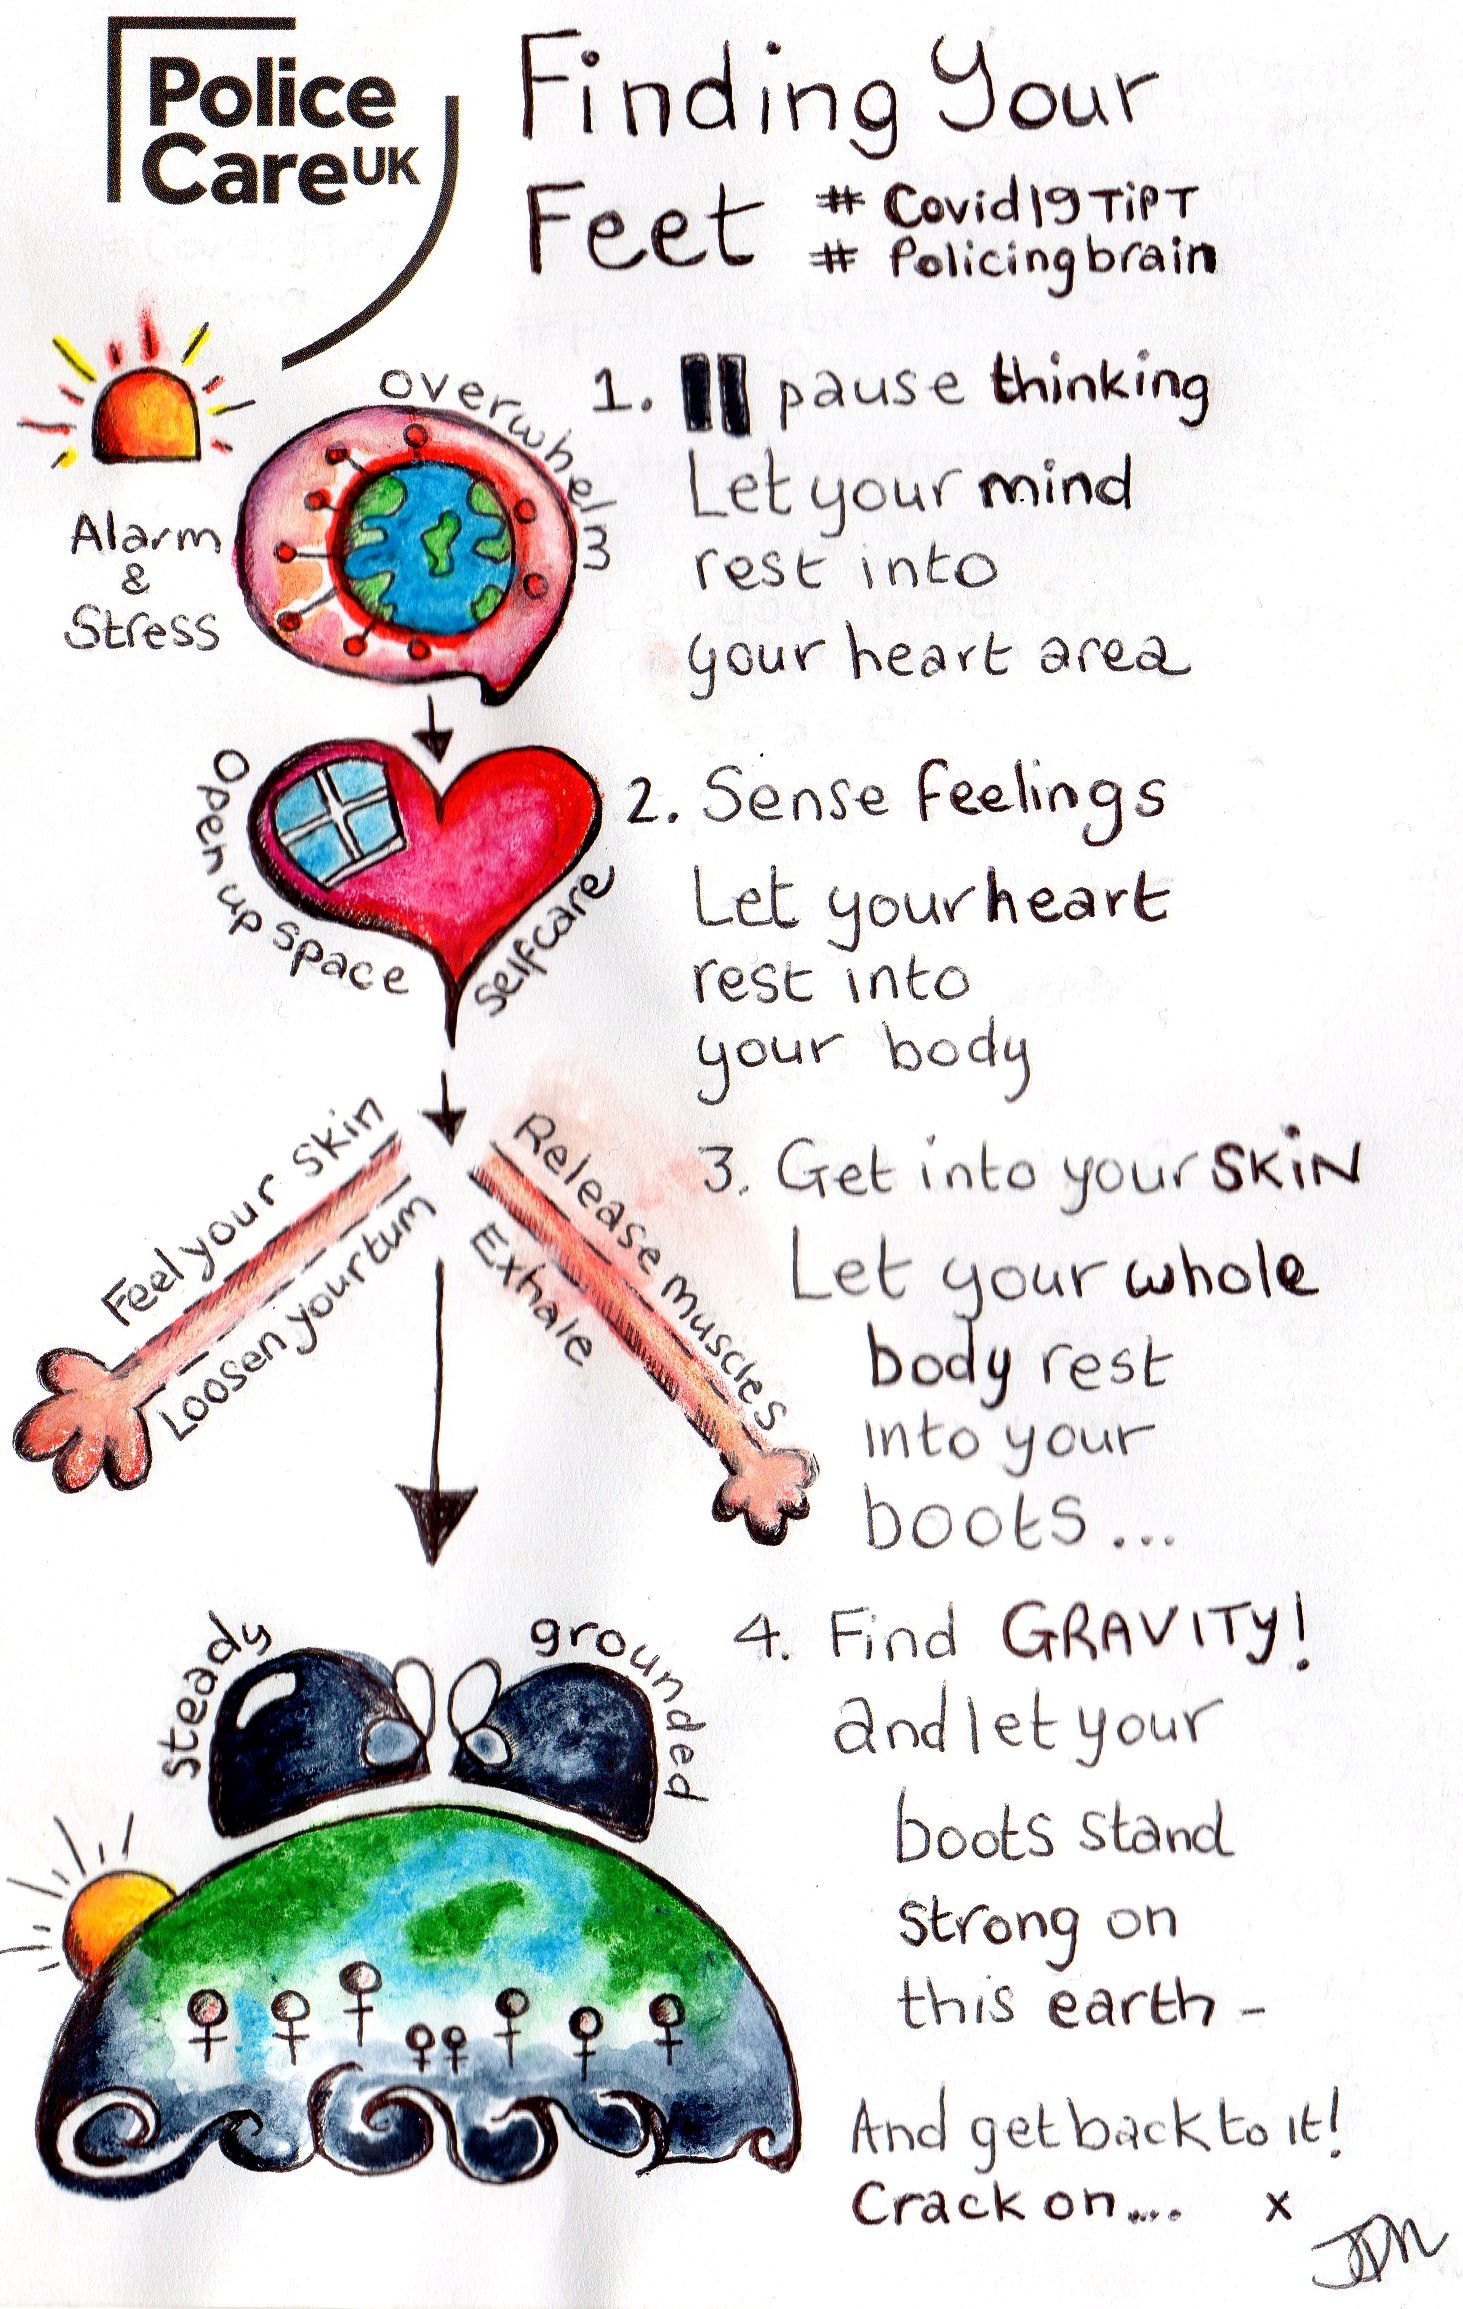 Police
Care UK
Finding Your
Feet
# Covid19TiPT
# Policingbrain
Alarm
&
Stress
overwhelm
1. pause thinking
Let your mind
rest into
your heart area
Open up space
selfcare
2. Sense feelings
Let your heart
rest into
your body
Feel your skin
Loosen your tum
Release muscles
Exhale
3. Get into your SKiN
Let your whole
body rest
into your
boots...
steady
grounded
4. Find GRAVITY!
and let your
boots stand
strong on
this earth -
And get back to it!
Crack on.... x